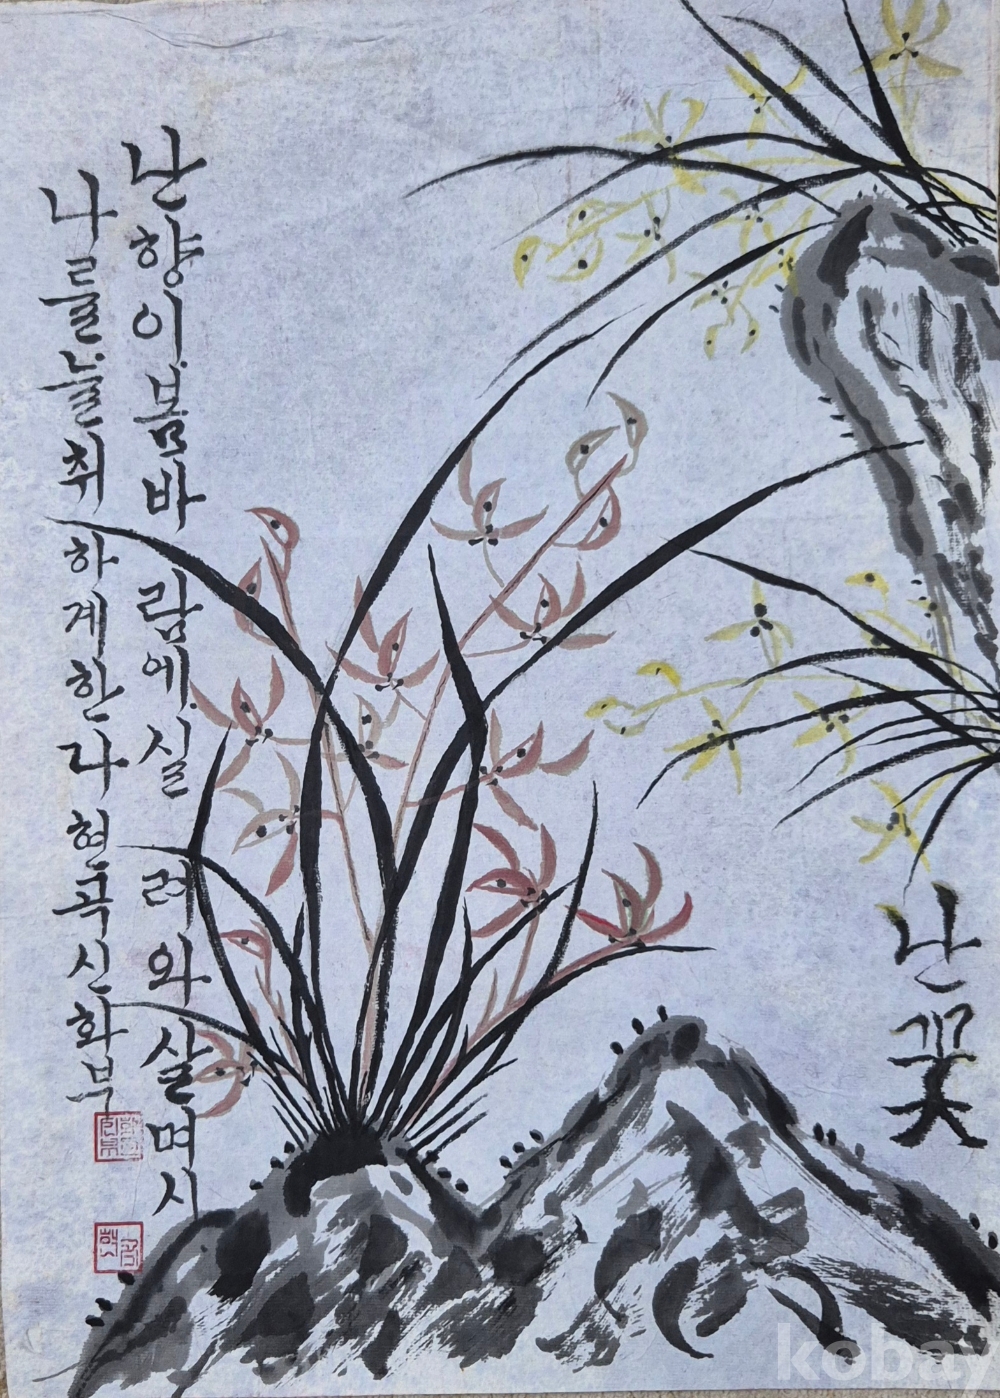 난꽃
난향이봄바람에실려와살며시
나를늘취하게한다현곡신화부
kobay